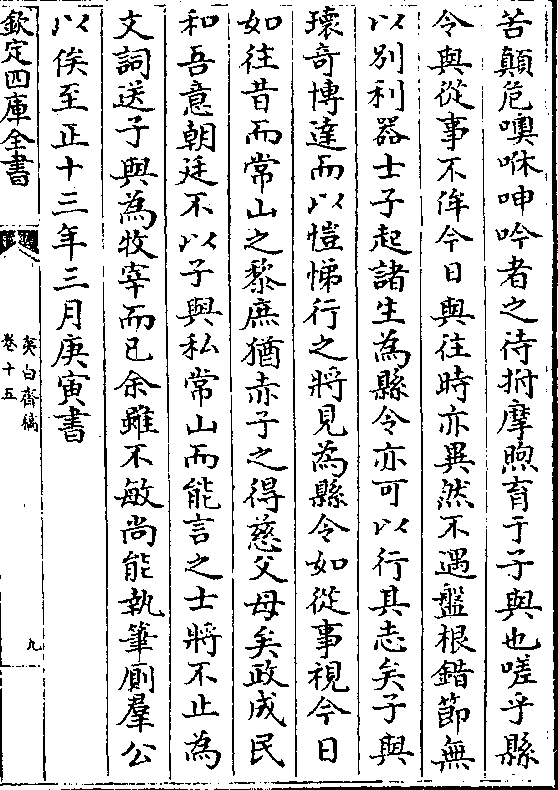 苦顛危噢咻呻吟者之待拊摩煦育于子與也嗟乎縣
令與從事不侔今日與往時亦異然不遇盤根錯節無
以别利器士子起諸生為縣令亦可以行其志矣子與
瓌奇博達而以愷悌行之將見為縣令如從事視今日
如往昔而常山之黎庶猶赤子之得慈父母矣政成民
和吾意朝廷不以子與私常山而能言之士將不止為
文詞送子與為牧宰而已余雖不敏尚能執筆厠羣公
以俟至正十三年三月庚寅書
欽定四庫全書
夷白齋稿
卷十五
九